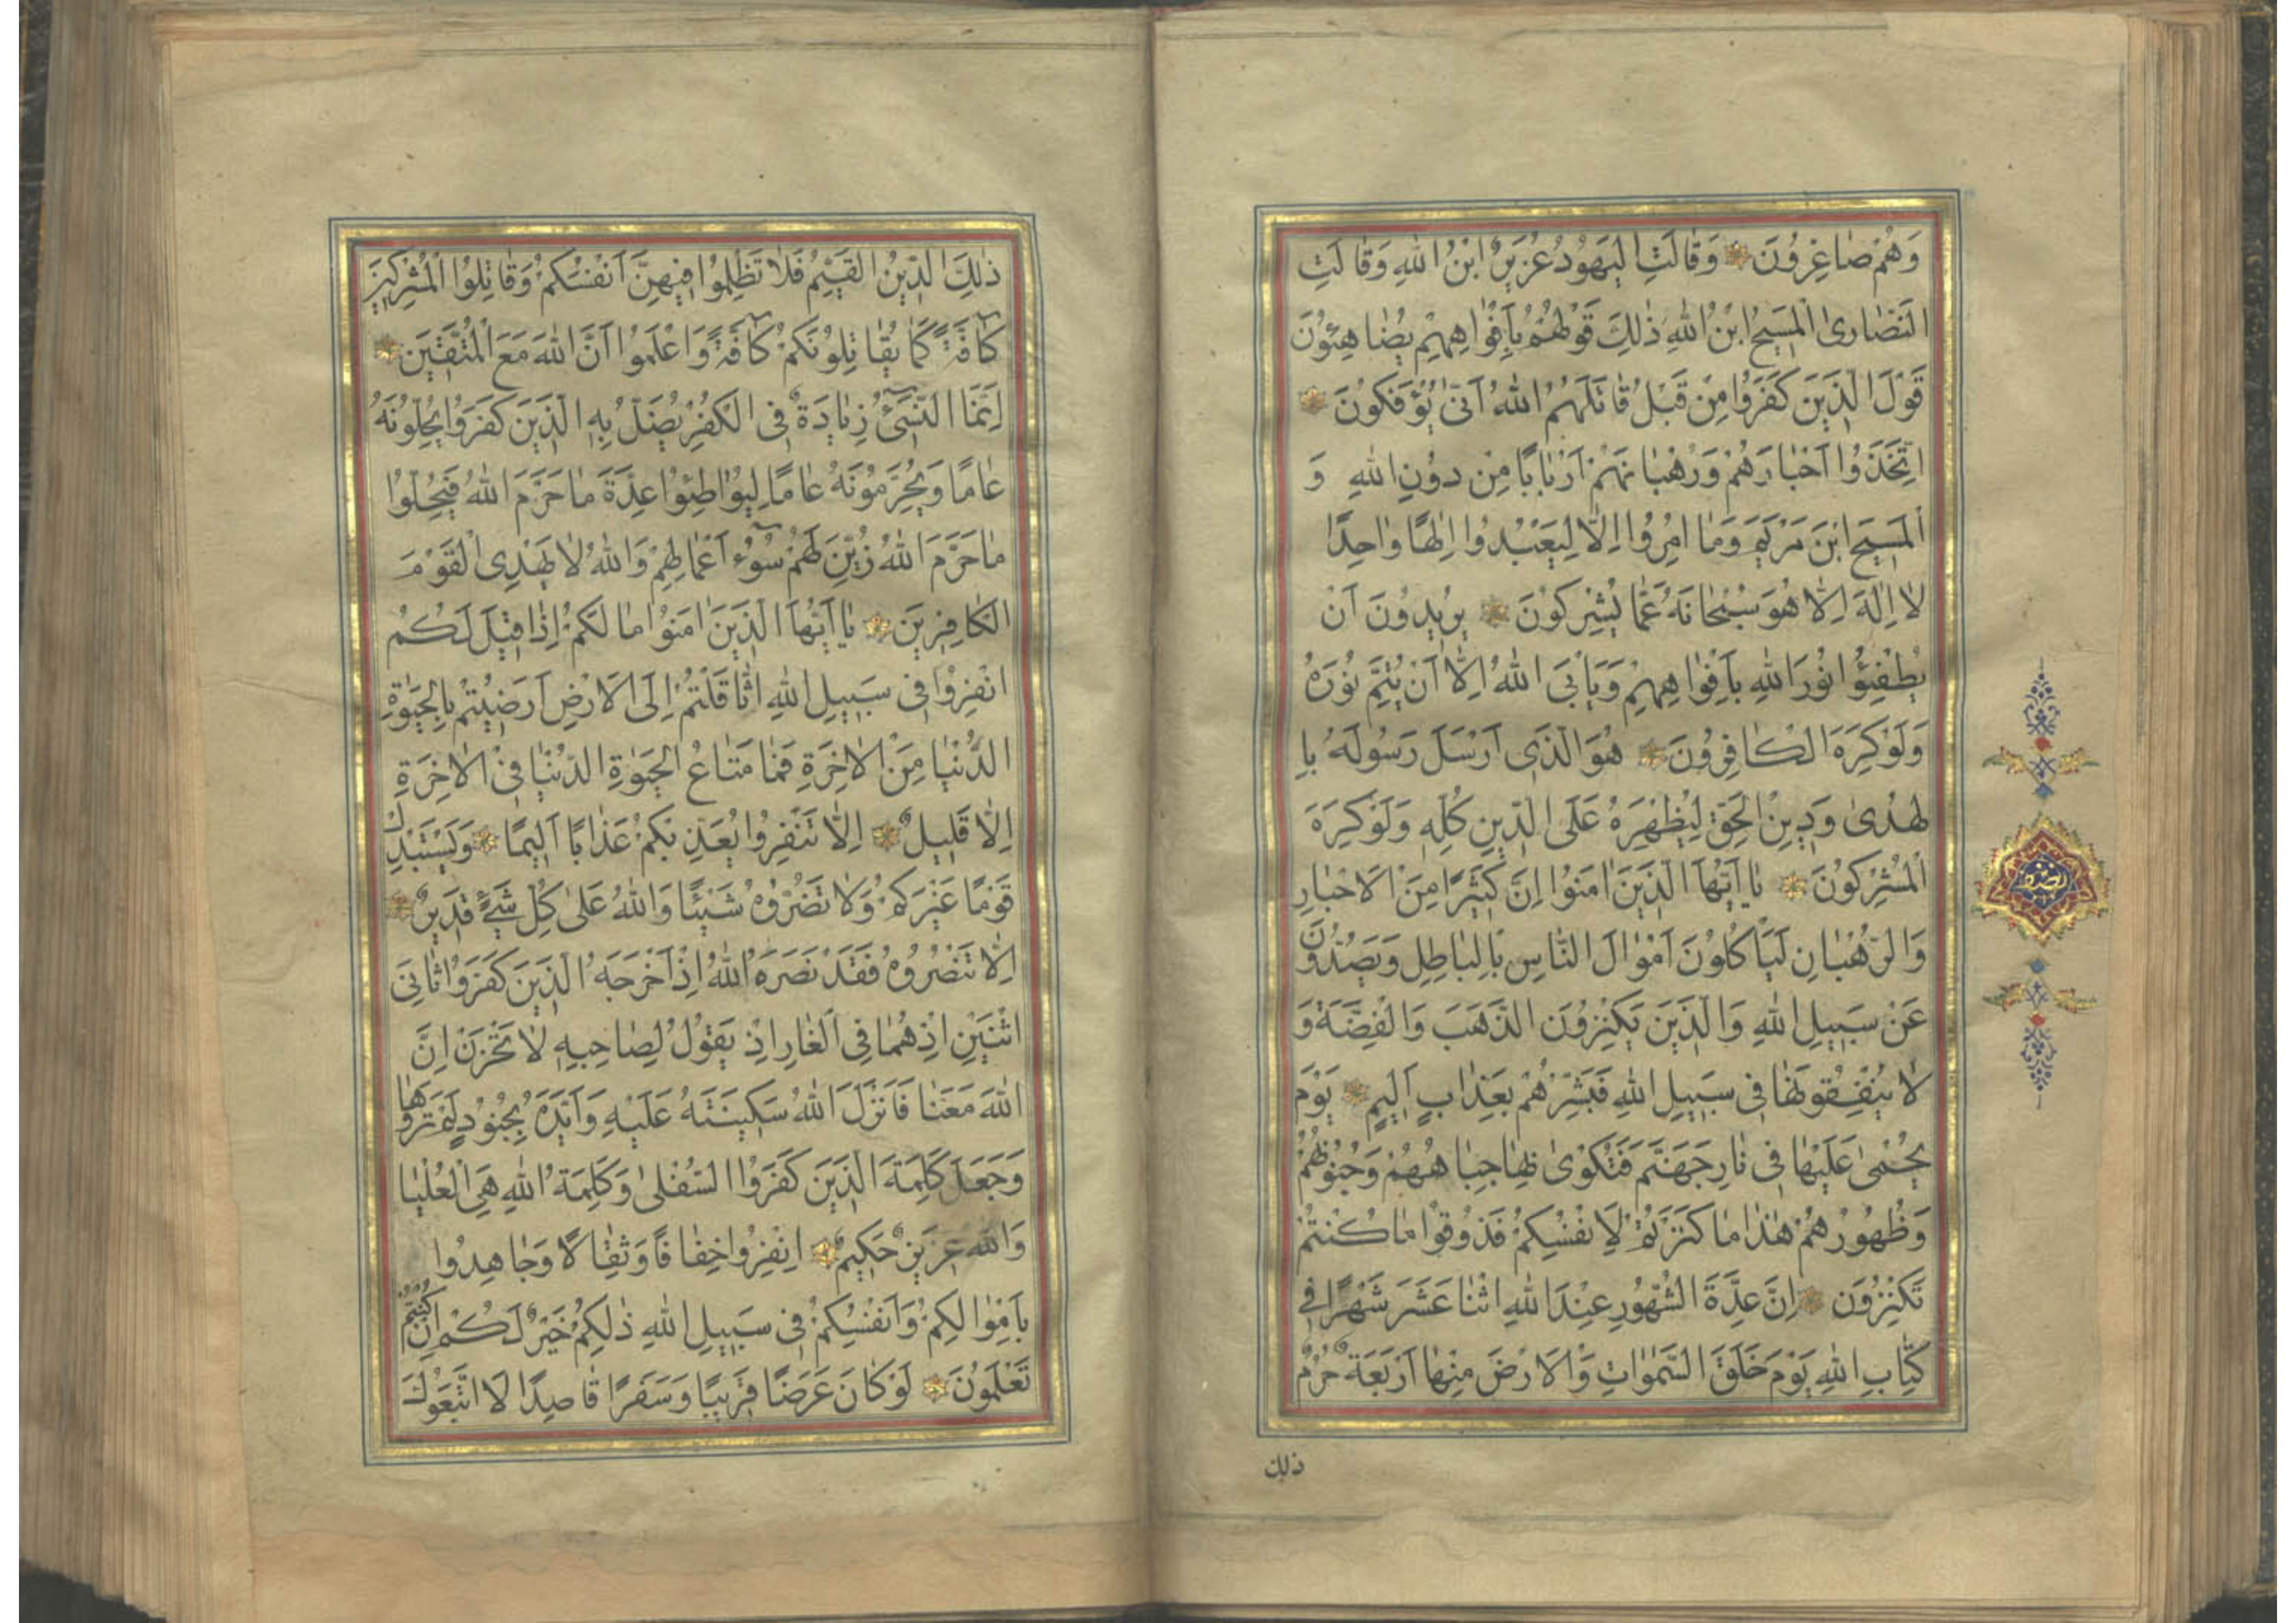 وَهُمْ صَاغِرُونَ وَقَالَتِ الْيَهُودُ عُزَيْرٌ ابْنُ اللهِ وَقَالَتِ
النَّصَارىٰ الْمَسِيحُ ابْنُ اللهِ ذٰلِكَ قَوْلُهُمْ بِاَفْوَاهِهِمْ يُضَاهِئُونَ
قَوْلَ الَّذِينَ كَفَرُوا مِنْ قَبْلُ قَاتَلَهُمُ اللهُ اَنّىٰ يُؤْفَكُونَ
اِتَّخَذُوا اَحْبَارَهُمْ وَرُهْبَانَهُمْ اَرْبَابًا مِنْ دُونِ اللهِ وَ
الْمَسِيحَ ابْنَ مَرْيَمَ وَمَا اُمِرُوا اِلَّا لِيَعْبُدُوا اِلٰهًا وَاحِدًا
لَا اِلٰهَ اِلَّا هُوَ سُبْحَانَهُ عَمَّا يُشْرِكُونَ يُرِيدُونَ اَنْ
يُطْفِئُوا نُورَ اللهِ بِاَفْوَاهِهِمْ وَيَاْبَى اللهُ اِلَّا اَنْ يُتِمَّ نُورَهُ
وَلَوْ كَرِهَ الْكَافِرُونَ هُوَ الَّذِى اَرْسَلَ رَسُولَهُ بِا
لْهُدىٰ وَدِينِ الْحَقِّ لِيُظْهِرَهُ عَلَى الدِّينِ كُلِّهِ وَلَوْ كَرِهَ
الْمُشْرِكُونَ يَا اَيُّهَا الَّذِينَ اٰمَنُوا اِنَّ كَثِيرًا مِنَ الْاَحْبَارِ
وَالرُّهْبَانِ لَيَاْكُلُونَ اَمْوَالَ النَّاسِ بِالْبَاطِلِ وَيَصُدُّونَ
عَنْ سَبِيلِ اللهِ وَالَّذِينَ يَكْنِزُونَ الذَّهَبَ وَالْفِضَّةَ وَ
لَا يُنْفِقُونَهَا فِى سَبِيلِ اللهِ فَبَشِّرْهُمْ بِعَذَابٍ اَلِيمٍ يَوْمَ
يُحْمىٰ عَلَيْهَا فِى نَارِ جَهَنَّمَ فَتُكْوىٰ بِهَا جِبَاهُهُمْ وَجُنُوبُهُمْ
وَظُهُورُهُمْ هٰذَا مَا كَنَزْتُمْ لِاَنْفُسِكُمْ فَذُوقُوا مَا كُنْتُمْ
تَكْنِزُونَ اِنَّ عِدَّةَ الشُّهُورِ عِنْدَ اللهِ اثْنَا عَشَرَ شَهْرًا فِى
كِتَابِ اللهِ يَوْمَ خَلَقَ السَّمٰوَاتِ وَالْاَرْضَ مِنْهَا اَرْبَعَةٌ حُرُمٌ
ذلك
ذٰلِكَ الدِّينُ الْقَيِّمُ فَلَا تَظْلِمُوا فِيهِنَّ اَنْفُسَكُمْ وَقَاتِلُوا الْمُشْرِكِينَ
كَافَّةً كَمَا يُقَاتِلُونَكُمْ كَافَّةً وَاعْلَمُوا اَنَّ اللهَ مَعَ الْمُتَّقِينَ
اِنَّمَا النَّسِىءُ زِيَادَةٌ فِى الْكُفْرِ يُضَلُّ بِهِ الَّذِينَ كَفَرُوا يُحِلُّونَهُ
عَامًا وَيُحَرِّمُونَهُ عَامًا لِيُوَاطِئُوا عِدَّةَ مَا حَرَّمَ اللهُ فَيُحِلُّوا
مَا حَرَّمَ اللهُ زُيِّنَ لَهُمْ سُوءُ اَعْمَالِهِمْ وَاللهُ لَا يَهْدِى الْقَوْمَ
الْكَافِرِينَ يَا اَيُّهَا الَّذِينَ اٰمَنُوا مَا لَكُمْ اِذَا قِيلَ لَكُمُ
انْفِرُوا فِى سَبِيلِ اللهِ اثَّاقَلْتُمْ اِلَى الْاَرْضِ اَرَضِيتُمْ بِالْحَيٰوةِ
الدُّنْيَا مِنَ الْاٰخِرَةِ فَمَا مَتَاعُ الْحَيٰوةِ الدُّنْيَا فِى الْاٰخِرَةِ
اِلَّا قَلِيلٌ اِلَّا تَنْفِرُوا يُعَذِّبْكُمْ عَذَابًا اَلِيمًا وَيَسْتَبْدِلْ
قَوْمًا غَيْرَكُمْ وَلَا تَضُرُّوهُ شَيْئًا وَاللهُ عَلىٰ كُلِّ شَىْءٍ قَدِيرٌ
اِلَّا تَنْصُرُوهُ فَقَدْ نَصَرَهُ اللهُ اِذْ اَخْرَجَهُ الَّذِينَ كَفَرُوا ثَانِىَ
اثْنَيْنِ اِذْ هُمَا فِى الْغَارِ اِذْ يَقُولُ لِصَاحِبِهِ لَا تَحْزَنْ اِنَّ
اللهَ مَعَنَا فَاَنْزَلَ اللهُ سَكِينَتَهُ عَلَيْهِ وَاَيَّدَهُ بِجُنُودٍ لَمْ تَرَوْهَا
وَجَعَلَ كَلِمَةَ الَّذِينَ كَفَرُوا السُّفْلىٰ وَكَلِمَةُ اللهِ هِىَ الْعُلْيَا
وَاللهُ عَزِيزٌ حَكِيمٌ اِنْفِرُوا خِفَافًا وَثِقَالًا وَجَاهِدُوا
بِاَمْوَالِكُمْ وَاَنْفُسِكُمْ فِى سَبِيلِ اللهِ ذٰلِكُمْ خَيْرٌ لَكُمْ اِنْ كُنْتُمْ
تَعْلَمُونَ لَوْ كَانَ عَرَضًا قَرِيبًا وَسَفَرًا قَاصِدًا لَاتَّبَعُوكَ